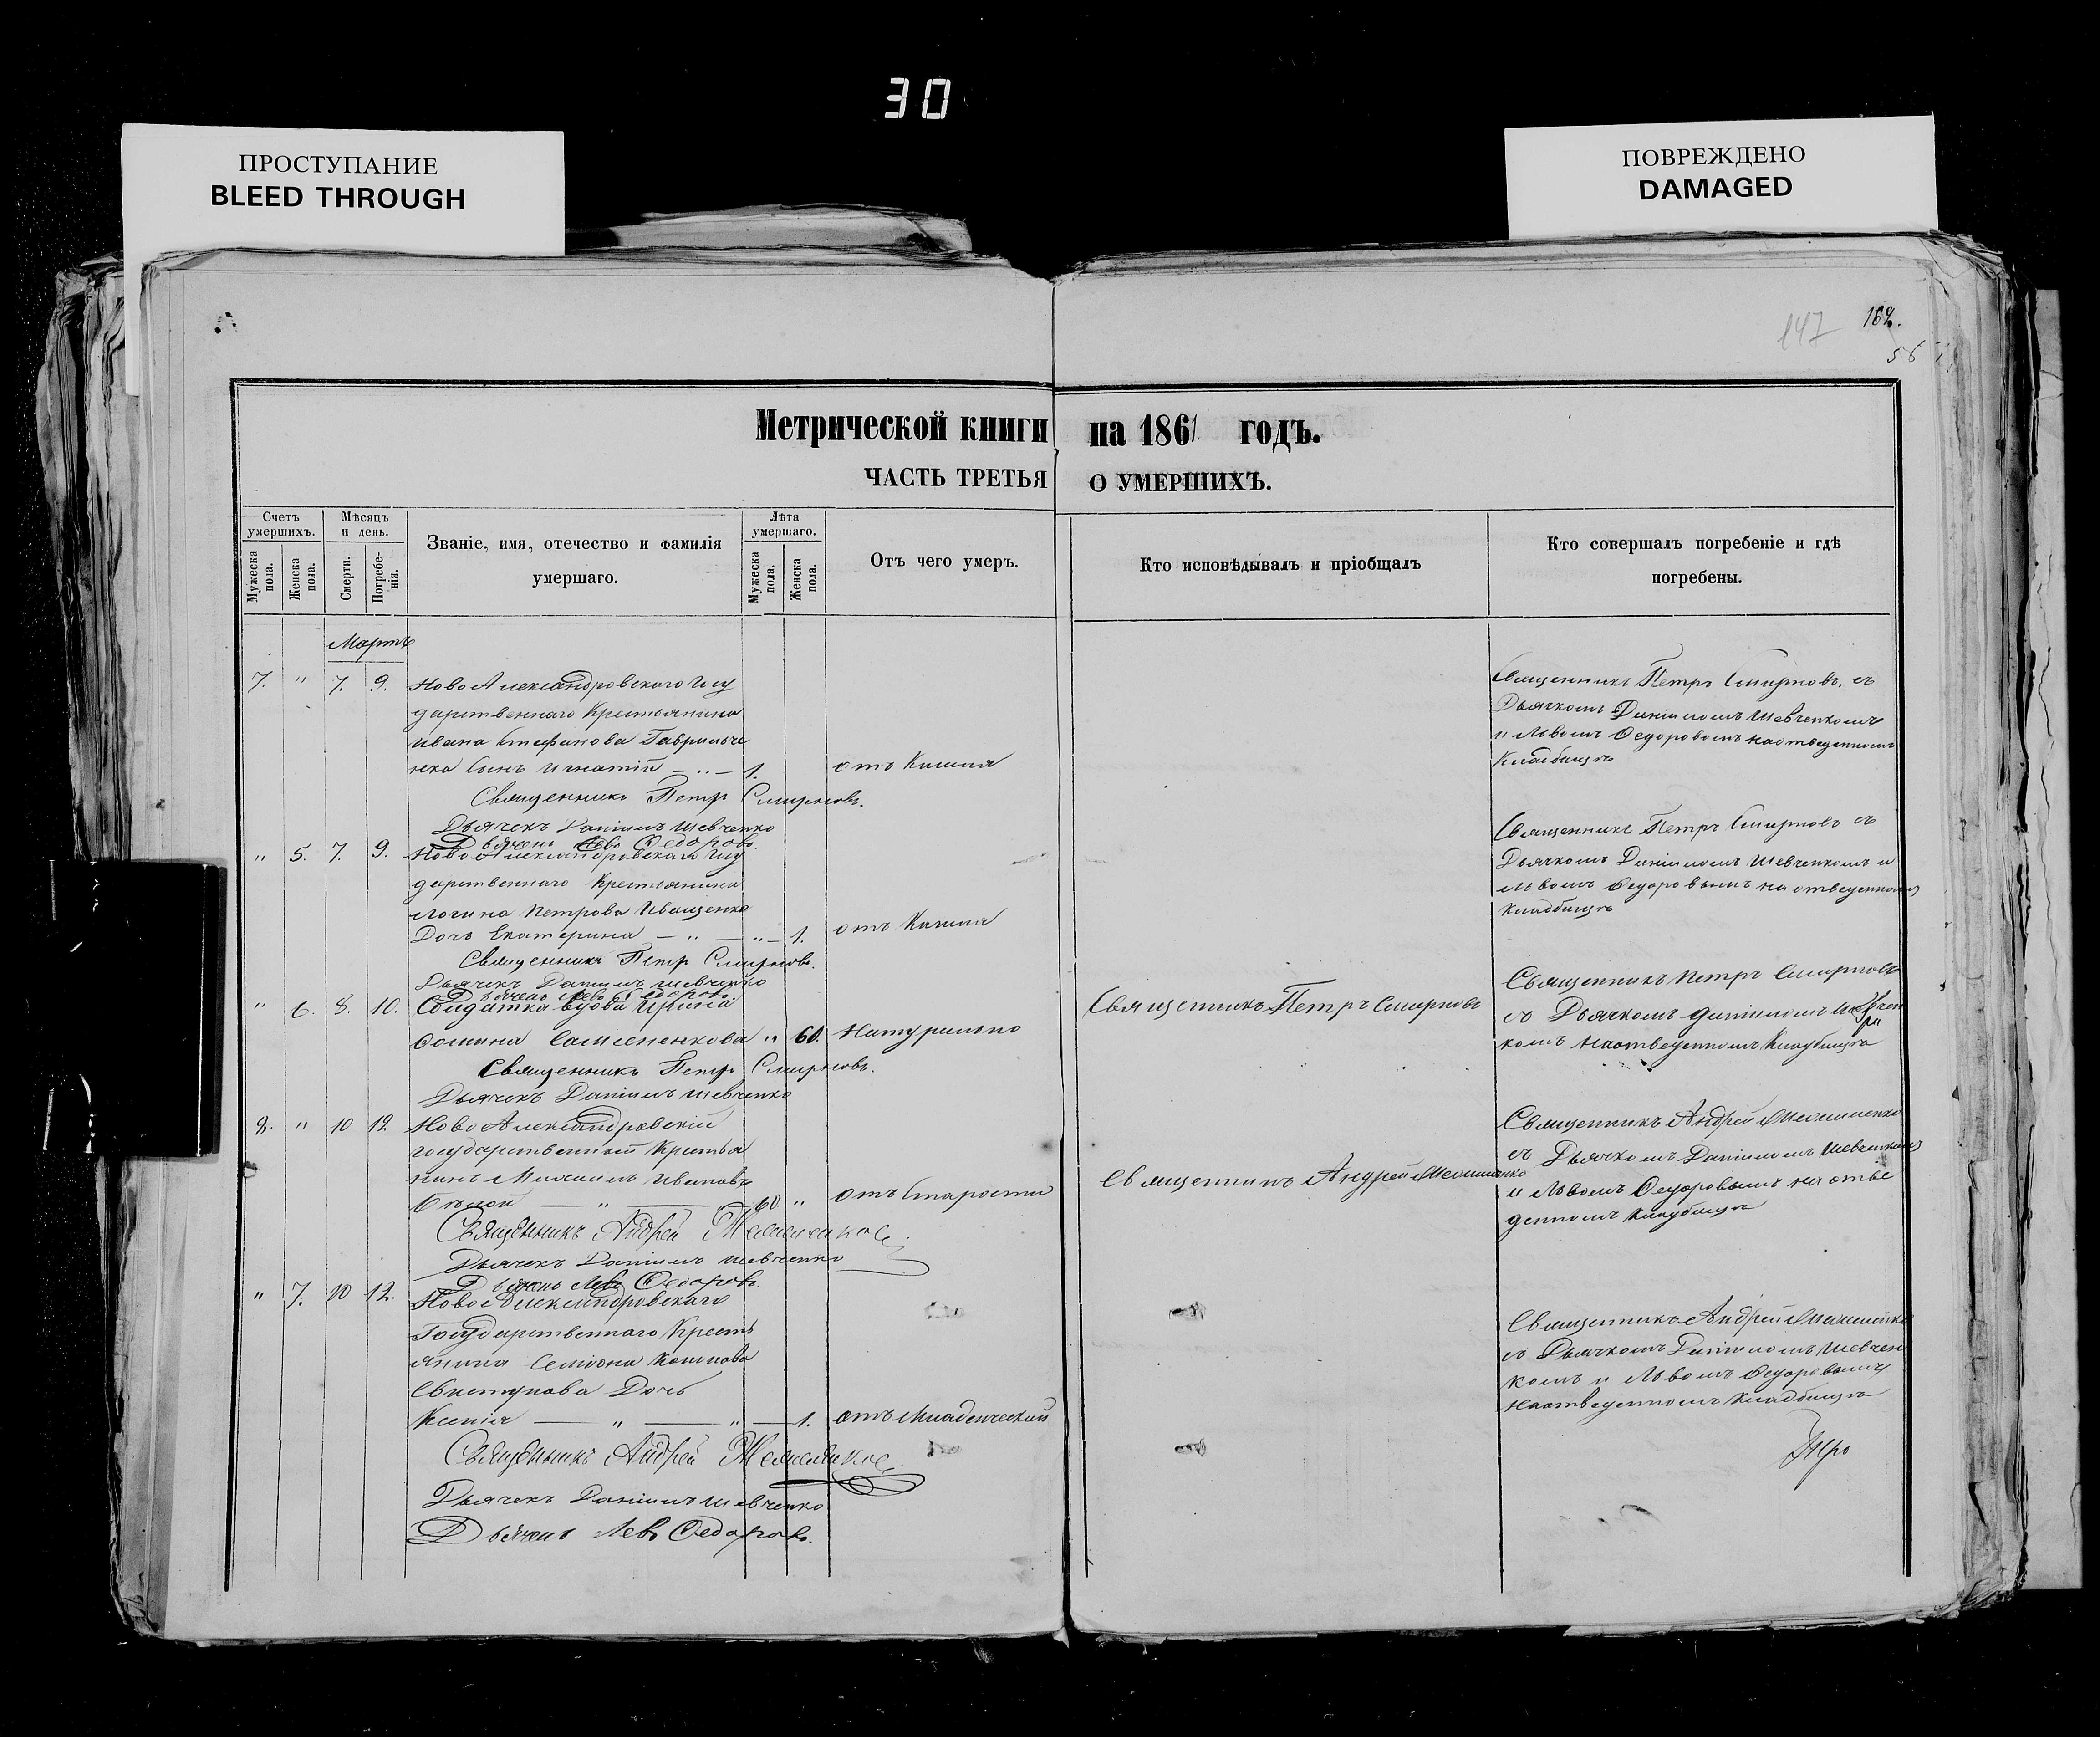 30
ПРОСТУПАНИЕ
BLEED THROUGH
ПОВРЕЖДЕНО
DAMAGED
147
162.
56
Метрической книги на 1861 годъ.
ЧАСТЬ ТРЕТЬЯ О УМЕРШИХЪ.
Счетъ умершихъ.
Мужеска пола.
Женска пола.
Мѣсяцъ и день.
Смерти.
Погребенія.
Званіе, имя, отечество и фамилія
умершаго.
Лѣта умершаго.
Мужеска пола.
Женска пола.
Отъ чего умеръ.
Кто исповѣдывалъ и пріобщалъ
Кто совершалъ погребеніе и гдѣ
погребены.
Мартъ
7. " 7. 9. Ново Александровскаго Госу
дарственнаго Крестьянина
Ивана Стефанова Гаврильче
нка Сынъ Игнатій — " — 1. отъ Кашля
Священникъ Петръ Смирновъ.
Дьячекъ Даніилъ Шевченко
Дьячекъ Левъ Федоровъ.
Священникъ Петръ Смирновъ, съ
Дьячкомъ Даніиломъ Шевченкомъ
и Львомъ Федоровомъ на отведенномъ
Кладбищѣ
" 5. 7. 9. Ново Александровскаго Госу
дарственнаго Крестьянина
Логина Петрова Иващенка
Дочь Екатерина — " — " — 1. отъ Кашля
Священникъ Петръ Смирновъ.
Дьячекъ Даніилъ Шевченко
Дьячекъ Левъ Федоровъ.
Священникъ Петръ Смирновъ съ
Дьячкомъ Даніиломъ Шевченкомъ и
Львомъ Федоровымъ на отведенномъ
Кладбищѣ
" 6. 8. 10. Солдатка вдова Ирина
Фомина " 60. Натурально
Священникъ Петръ Смирновъ.
Дьячекъ Даніилъ Шевченко
Священникъ Петръ Смирновъ
Священникъ Петръ Смирновъ
съ Дьячкомъ Даніиломъ Шевчен
комъ на отведенномъ Кладбищѣ
8. " 10 12 Ново Александровскій
государственный Крестья
нинъ Ивановъ
— " — 60. " отъ Старости
Священникъ Андрей
Дьячекъ Даніилъ Шевченко
Дьячекъ Левъ Федоровъ.
Священникъ Андрей
Священникъ Андрей
съ Дьячкомъ Даніиломъ Шевченкомъ
и Львомъ Федоровымъ на отве
денномъ Кладбищѣ
" 7. 10 12. Ново Александровскаго
Государственнаго Кресть
янина Семіона
Свистунова Дочь
Ксенія — " — " — 1. отъ Младенческой
Священникъ Андрей
Дьячекъ Даніилъ Шевченко
Дьячекъ Левъ Федоровъ.
Священникъ Андрей
съ Дьячкомъ Даніиломъ Шевчен
комъ и Львомъ Федоровымъ
на отведенномъ Кладбищѣ